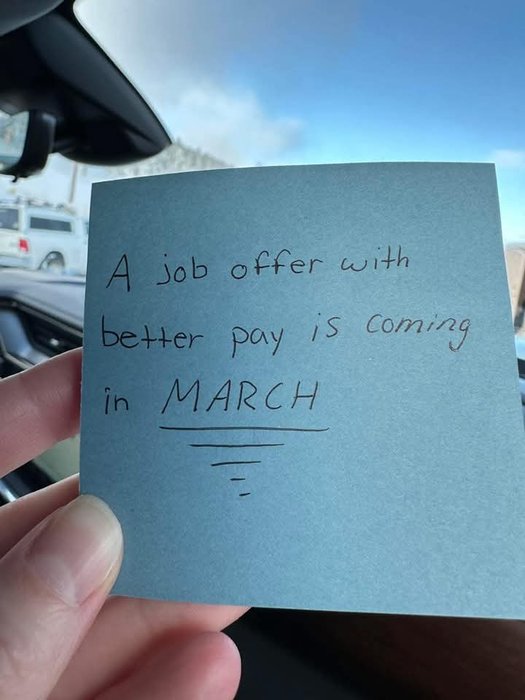 A job offer with
better pay is coming
in MARCH